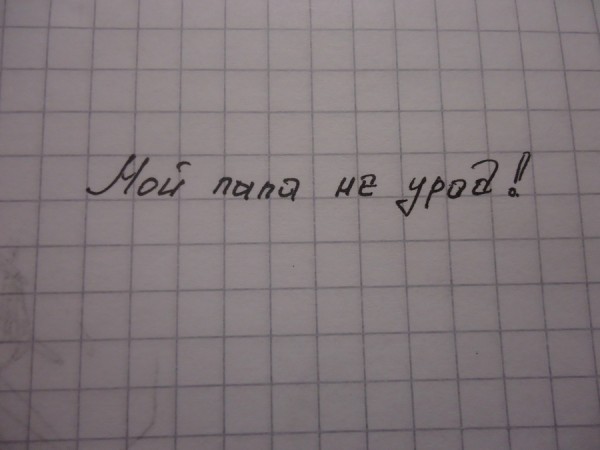 Мой папа не урод!